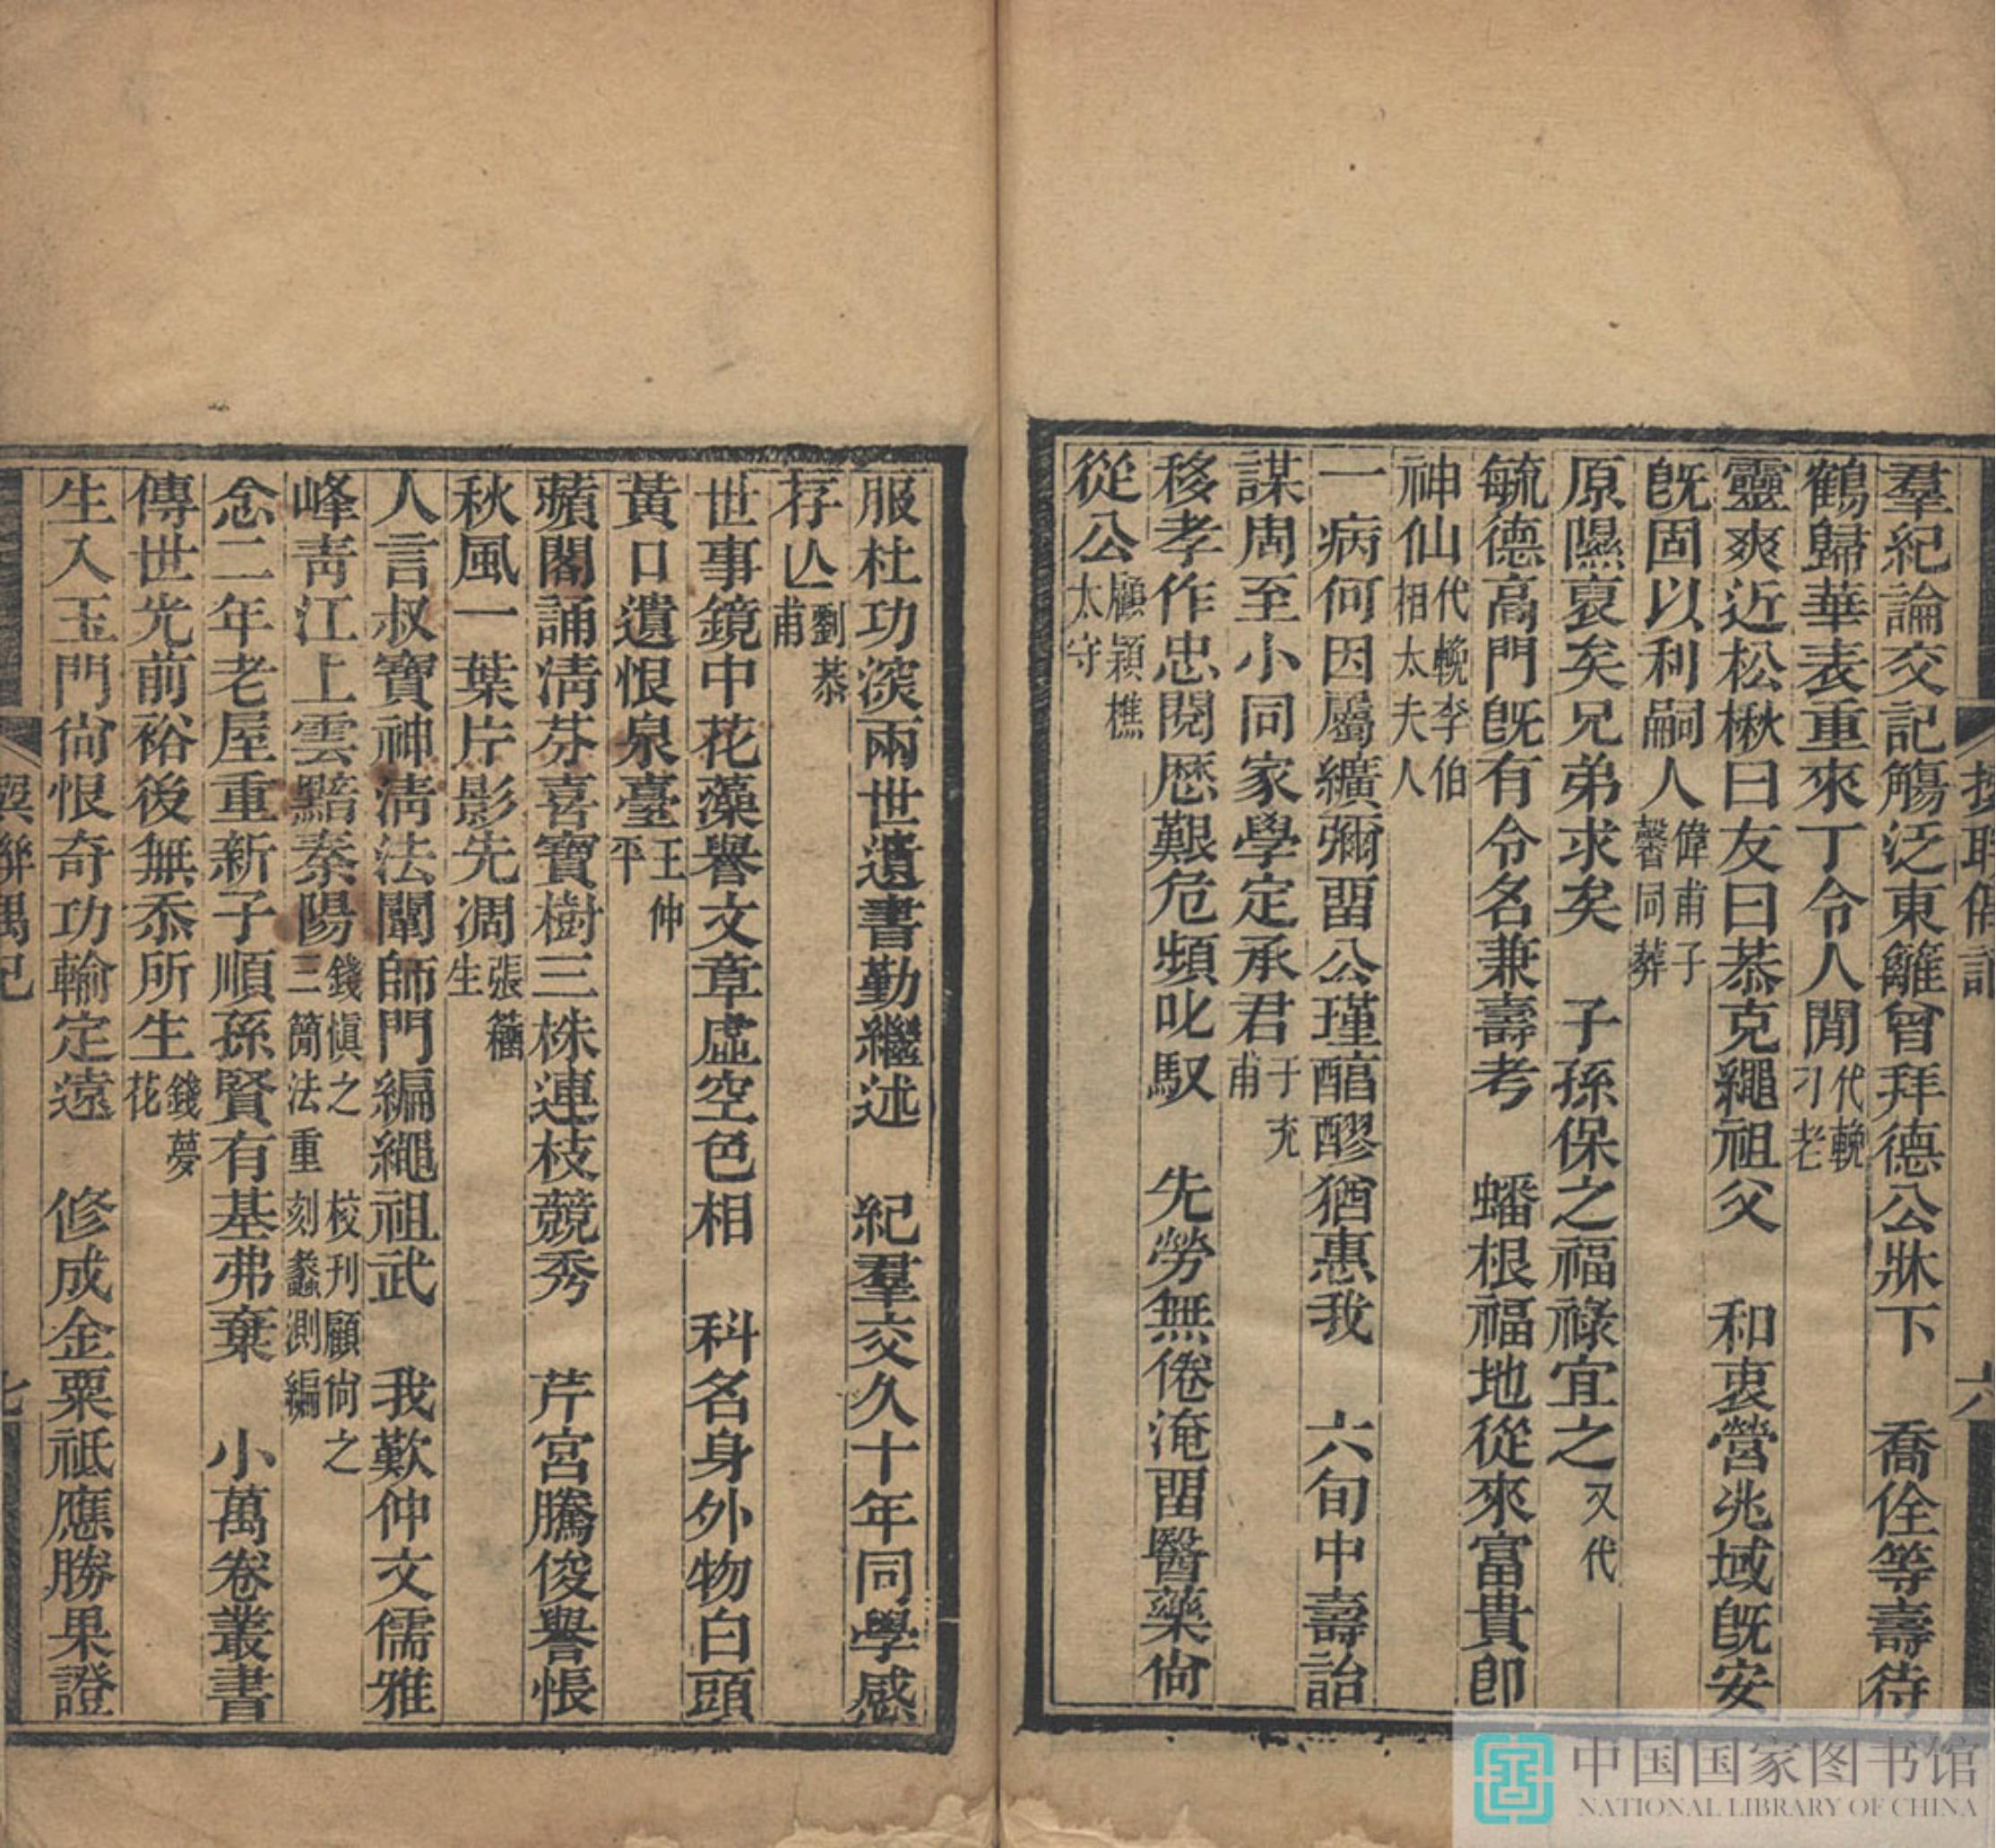 羣紀論交記觴泛東籬曾拜德公牀下　喬佺等壽待
鶴歸華表重來丁令人閒代輓刁老
靈爽近松楸曰友曰恭克繩祖父　和衷營兆域旣安
旣固以利嗣人偉甫子馨同葬
原隰裒矣兄弟求矣　子孫保之福祿宜之又代
毓德高門旣有令名兼壽考　蟠根福地從來富貴卽
神仙代輓李伯相太夫人
一病何因屬纊彌畱公瑾醕醪猶惠我　六旬中壽詒
謀周至小同家學定承君于充甫
移孝作忠閱歷艱危頻叱馭　先勞無倦淹畱醫藥尙
從公顧穎樵太守
六
服杜功深兩世遺書勤繼述　紀羣交久十年同學感
存亾劉恭甫
世事鏡中花藻譽文章虛空色相　科名身外物白頭
黃口遺恨泉臺王仲平
蘋閣誦淸芬喜寶樹三株連枝競秀　芹宮騰俊譽悵
秋風一葉片影先凋張籋生
人言叔寶神淸法闡師門編繩祖武　我歎仲文儒雅
峰靑江上雲黯秦陽錢愼之三簡法重校刊顧尙之刻蠡測編
念二年老屋重新子順孫賢有基弗棄　小萬卷叢書
傳世光前裕後無忝所生錢夢花
生入玉門尙恨奇功輸定遠　修成金粟祗應勝果證
中国国家图书馆
NATIONAL LIBRARY OF CHINA